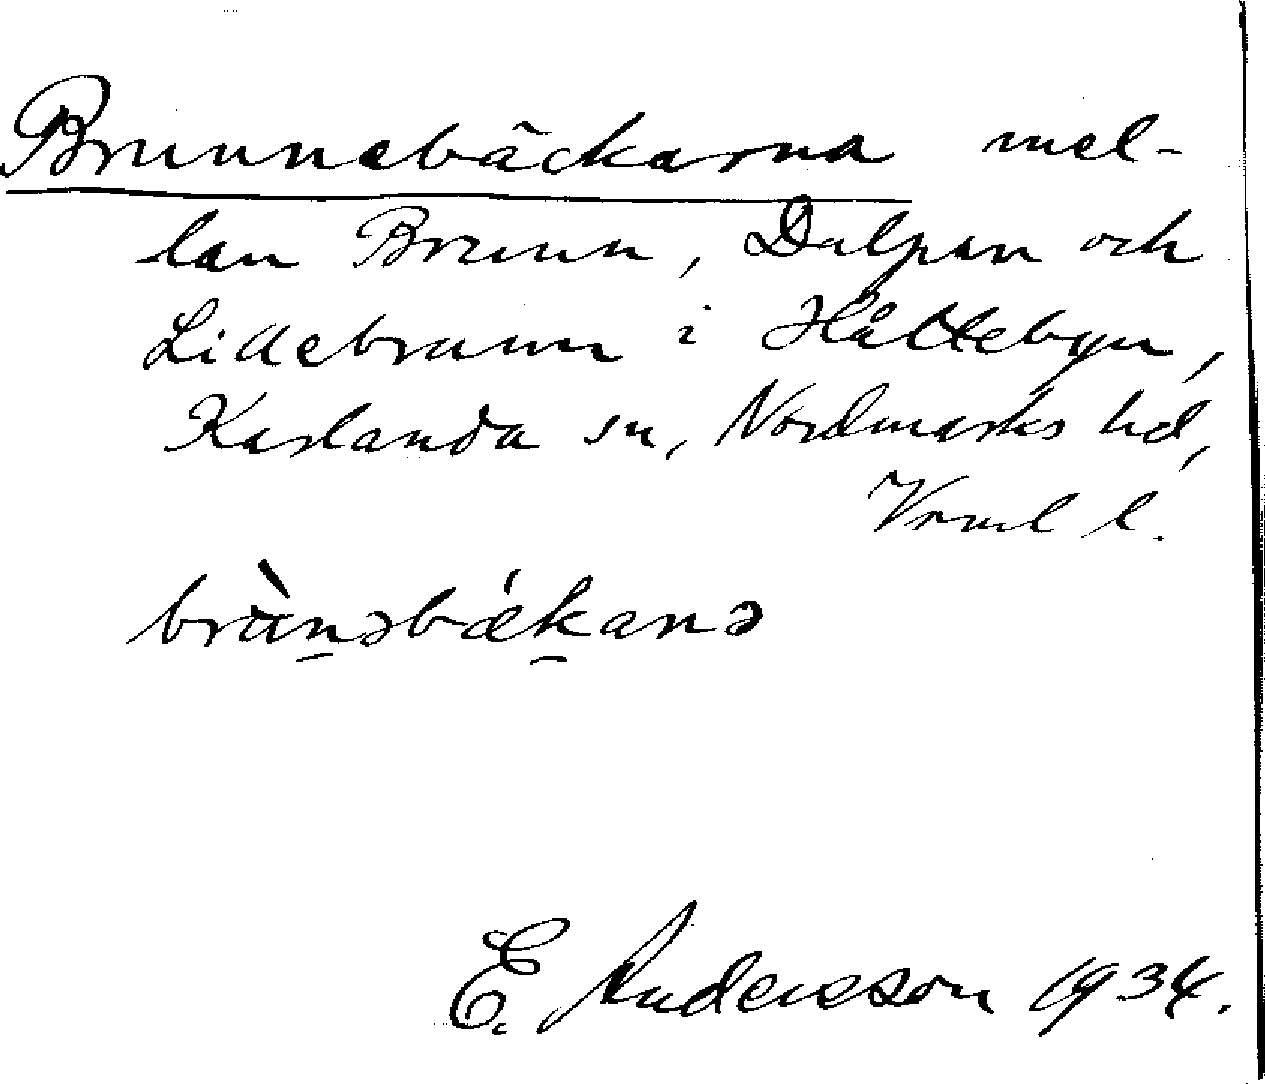 Brunnebäckarna mel-
lan Brunn, Dalpan och
Lillebrunn i Håltebyn,
Karlanda sn, Nordmarks hd,
Vrml l.
brùn̠əbǽk̠anə
E. Andersson 1934.